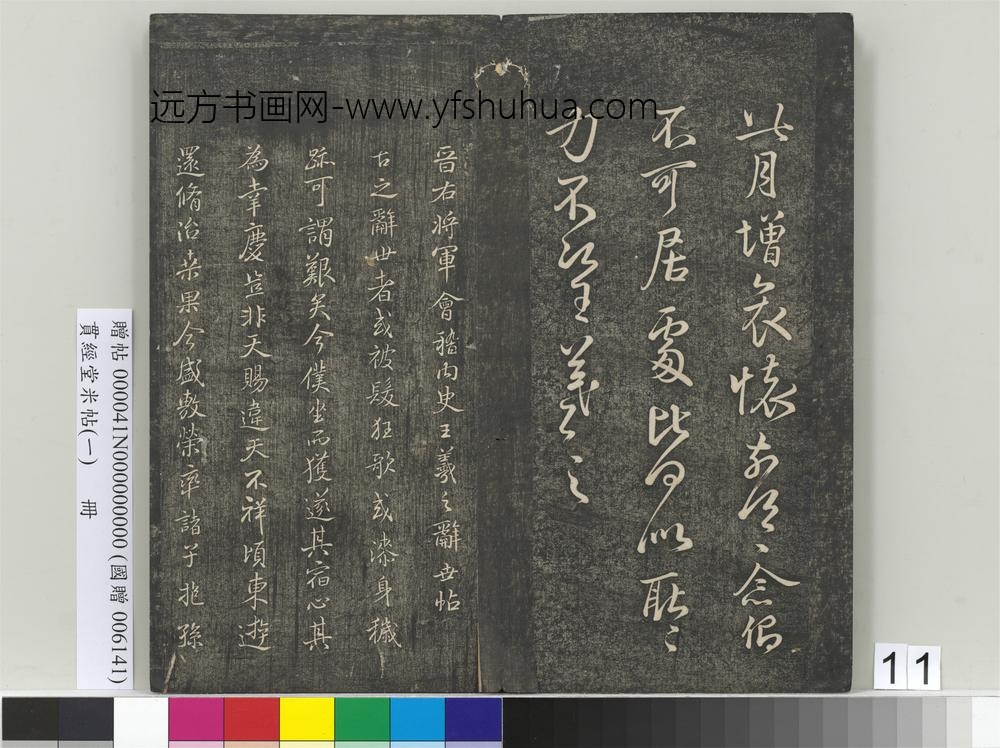 远方书画网-www.yfshuhua.com
此月增哀懷前得
不可居處比何似耿耿
力不宣羲之
晉右將軍會稽內史王羲之辭世帖
古之辭世者或被髮狂歌或漆身穢
跡可謂艱矣今僕坐而獲遂其宿心其
為幸慶豈非天賜違天不祥頃東遊
還脩治桒果今盛敷榮率諸子抱孫
贈帖 000041N000000000 (國贈 006141)
貫經堂米帖(一) 冊
11